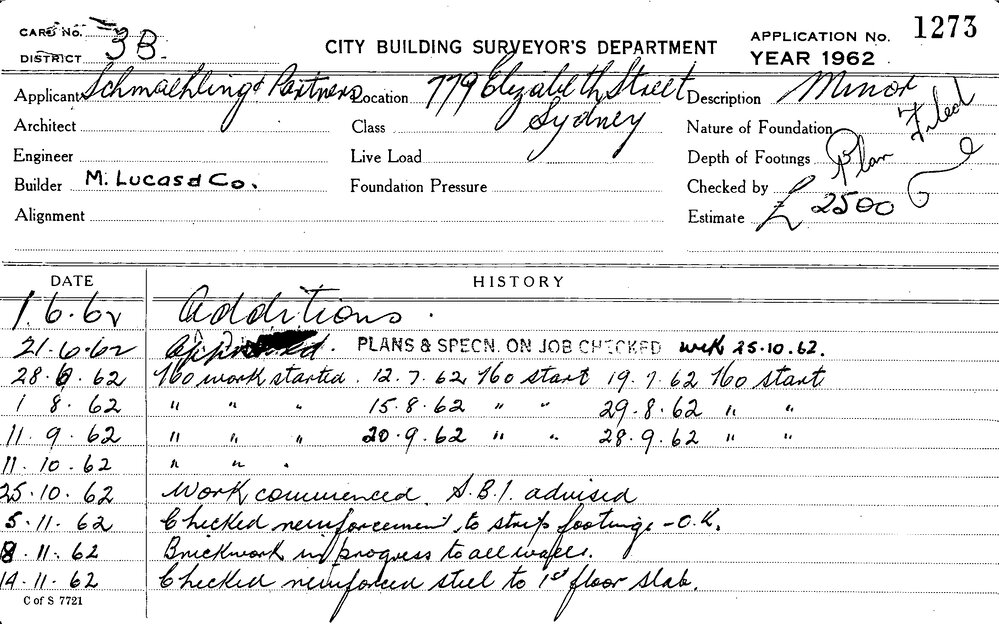 CARD No.
DISTRICT 3B.
CITY BUILDING SURVEYOR'S DEPARTMENT
APPLICATION No. 1273
YEAR 1962
Applicant Schmaehling & Partners Location 779 Elizabeth Street Description Minor
Architect Class Sydney Nature of Foundation Filed
Engineer Live Load Depth of Footings Plan
Builder M. Lucas & Co. Foundation Pressure Checked by
Alignment Estimate £ 2500
DATE HISTORY
1.6.62 Additions.
21.6.62 Approved. PLANS & SPECN. ON JOB CHECKED 25.10.62.
28.6.62 No work started. 12.7.62 No start 19.7.62 No start
1 8.62 " " " 15.8.62 " " 29.8.62 " "
11.9.62 " " " 20.9.62 " " 28.9.62 " "
11.10.62 " " "
25.10.62 Work commenced. S.B.I. advised
5.11.62 Checked reinforcement to strip footings - O.K.
8.11.62 Brickwork in progress to all walls.
14.11.62 Checked reinforced steel to 1st floor slab.
C of S 7721